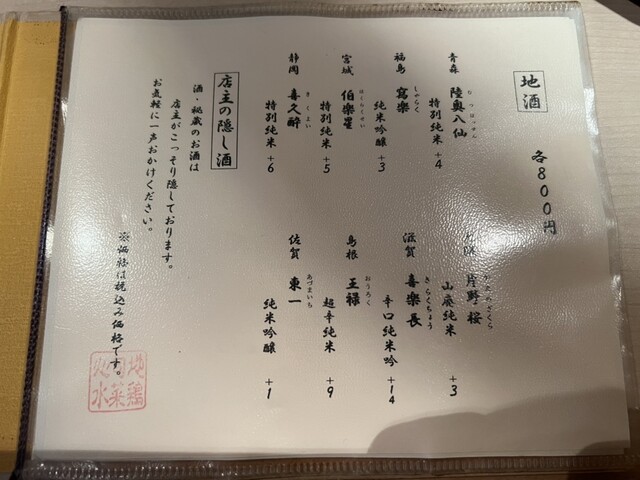 地酒
各800円
青森 陸奥八仙
むつはっせん
特別純米 +4
福島 寫樂
しゃらく
純米吟醸 +3
宮城 伯樂星
はくらくせい
特別純米 +5
静岡 喜久酔
きくよい
特別純米 +6
片野桜
山廃純米 +3
滋賀 喜楽長
きらくちょう
辛口純米吟 +14
島根 王禄
おうろく
超辛純米 +9
佐賀 東一
あづまいち
純米吟醸 +1
店主の隠し酒
酒・秘蔵のお酒は
店主がこっそり隠しております。
お気軽に一声おかけください。
※価格は税込み価格です。
地鶏
水菜